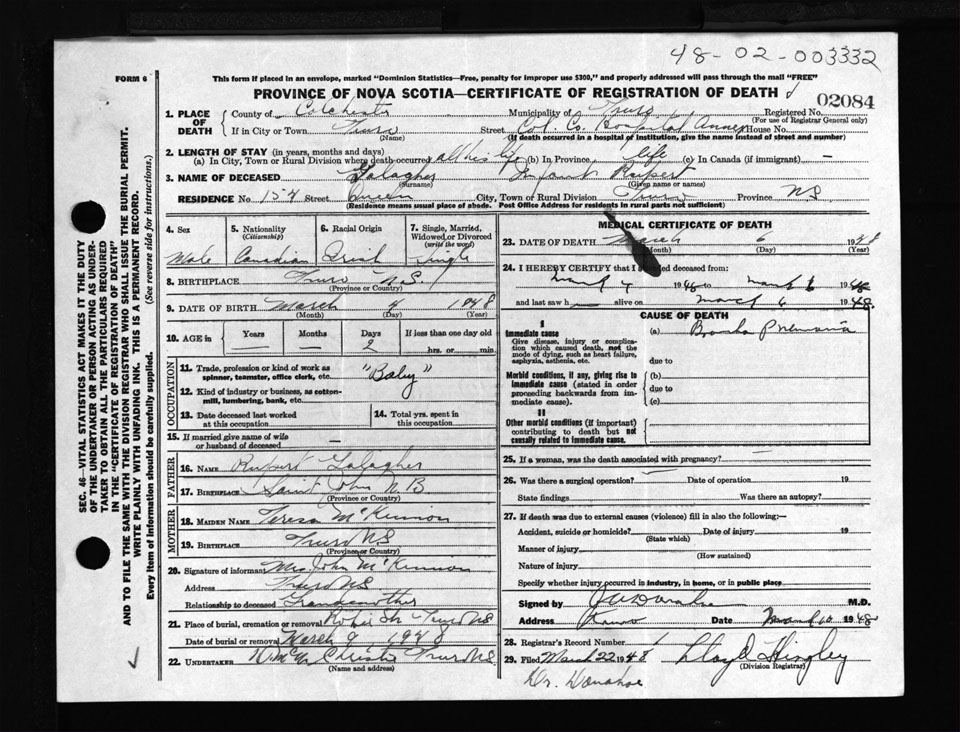 48-02-003332
FORM 6
This form if placed in an envelope, marked "Dominion Statistics—Free, penalty for improper use $300," and properly addressed will pass through the mail "FREE"
PROVINCE OF NOVA SCOTIA—CERTIFICATE OF REGISTRATION OF DEATH
02084
1. PLACE OF DEATH
County of Colchester Municipality of Truro Registered No.
(For use of Registrar General only)
If in City or Town Truro Street Col. Co. Hospital Annex House No.
(Name) (If death occurred in a hospital of institution, give the name instead of street and number)
2. LENGTH OF STAY (in years, months and days)
(a) In City, Town or Rural Division where death occurred all his life (b) In Province life (c) In Canada (if immigrant) —
3. NAME OF DECEASED Galagher Infant Rupert
(Surname) (Given name or names)
RESIDENCE No 154 Street Queen City, Town or Rural Division Truro Province NS
(Residence means usual place of abode. Post Office Address for residents in rural parts not sufficient)
4. Sex
Male
5. Nationality
(Citizenship)
Canadian
6. Racial Origin
Irish
7. Single, Married, Widowed or Divorced
(write the word)
Single
8. BIRTHPLACE Truro N.S.
(Province or Country)
9. DATE OF BIRTH March 4 1948
(Month) (Day) (Year)
10. AGE in Years Months Days If less than one day old
— — 2 hrs. or min.
OCCUPATION
11. Trade, profession or kind of work as spinner, teamster, office clerk, etc. "Baby"
12. Kind of industry or business, as cotton-mill, lumbering, bank, etc.
13. Date deceased last worked at this occupation
14. Total yrs. spent in this occupation
15. If married give name of wife or husband of deceased —
FATHER
16. NAME Rupert Galagher
17. BIRTHPLACE Saint John N.B
(Province or Country)
MOTHER
18. MAIDEN NAME Teresa McKinnon
19. BIRTHPLACE Truro NS
(Province or Country)
20. Signature of informant Mrs. John McKinnon
Address Truro NS
Relationship to deceased Grandmother
21. Place of burial, cremation or removal Truro NS
Date of burial or removal March 9 1948
22. UNDERTAKER Christie Truro NS.
(Name and address)
MEDICAL CERTIFICATE OF DEATH
23. DATE OF DEATH March 6 1948
(Month) (Day) (Year)
24. I HEREBY CERTIFY that I attended deceased from:
March 4 1948 to March 6 1948
and last saw h alive on March 6 1948.
CAUSE OF DEATH
I
Immediate cause
Give disease, injury or complication which caused death, not the mode of dying, such as heart failure, asphyxia, asthenia, etc.
(a) Broncho Pneumonia
due to
Morbid conditions, if any, giving rise to immediate cause (stated in order proceeding backwards from immediate cause).
(b)
due to
(c)
II
Other morbid conditions (if important) contributing to death but not causally related to immediate cause.
25. If a woman, was the death associated with pregnancy? —
26. Was there a surgical operation? — Date of operation 19
State findings Was there an autopsy?
27. If death was due to external causes (violence) fill in also the following:—
Accident, suicide or homicide? Date of injury 19
(State which)
Manner of injury
(How sustained)
Nature of injury
Specify whether injury occurred in industry, in home, or in public place
Signed by M.D.
Address Truro Date March 10 1948
28. Registrar's Record Number 1
29. Filed March 22 1948 Lloyd Hingley
(Division Registrar)
Dr. Donahoe
SEC. 46—VITAL STATISTICS ACT MAKES IT THE DUTY
OF THE UNDERTAKER OR PERSON ACTING AS UNDER-
TAKER TO OBTAIN ALL THE PARTICULARS REQUIRED
IN THE "CERTIFICATE OF REGISTRATION OF DEATH"
AND TO FILE THE SAME WITH THE DIVISION REGISTRAR WHO SHALL ISSUE THE BURIAL PERMIT.
WRITE PLAINLY WITH UNFADING INK. THIS IS A PERMANENT RECORD.
Every item of Information should be carefully supplied. (See reverse side for instructions.)